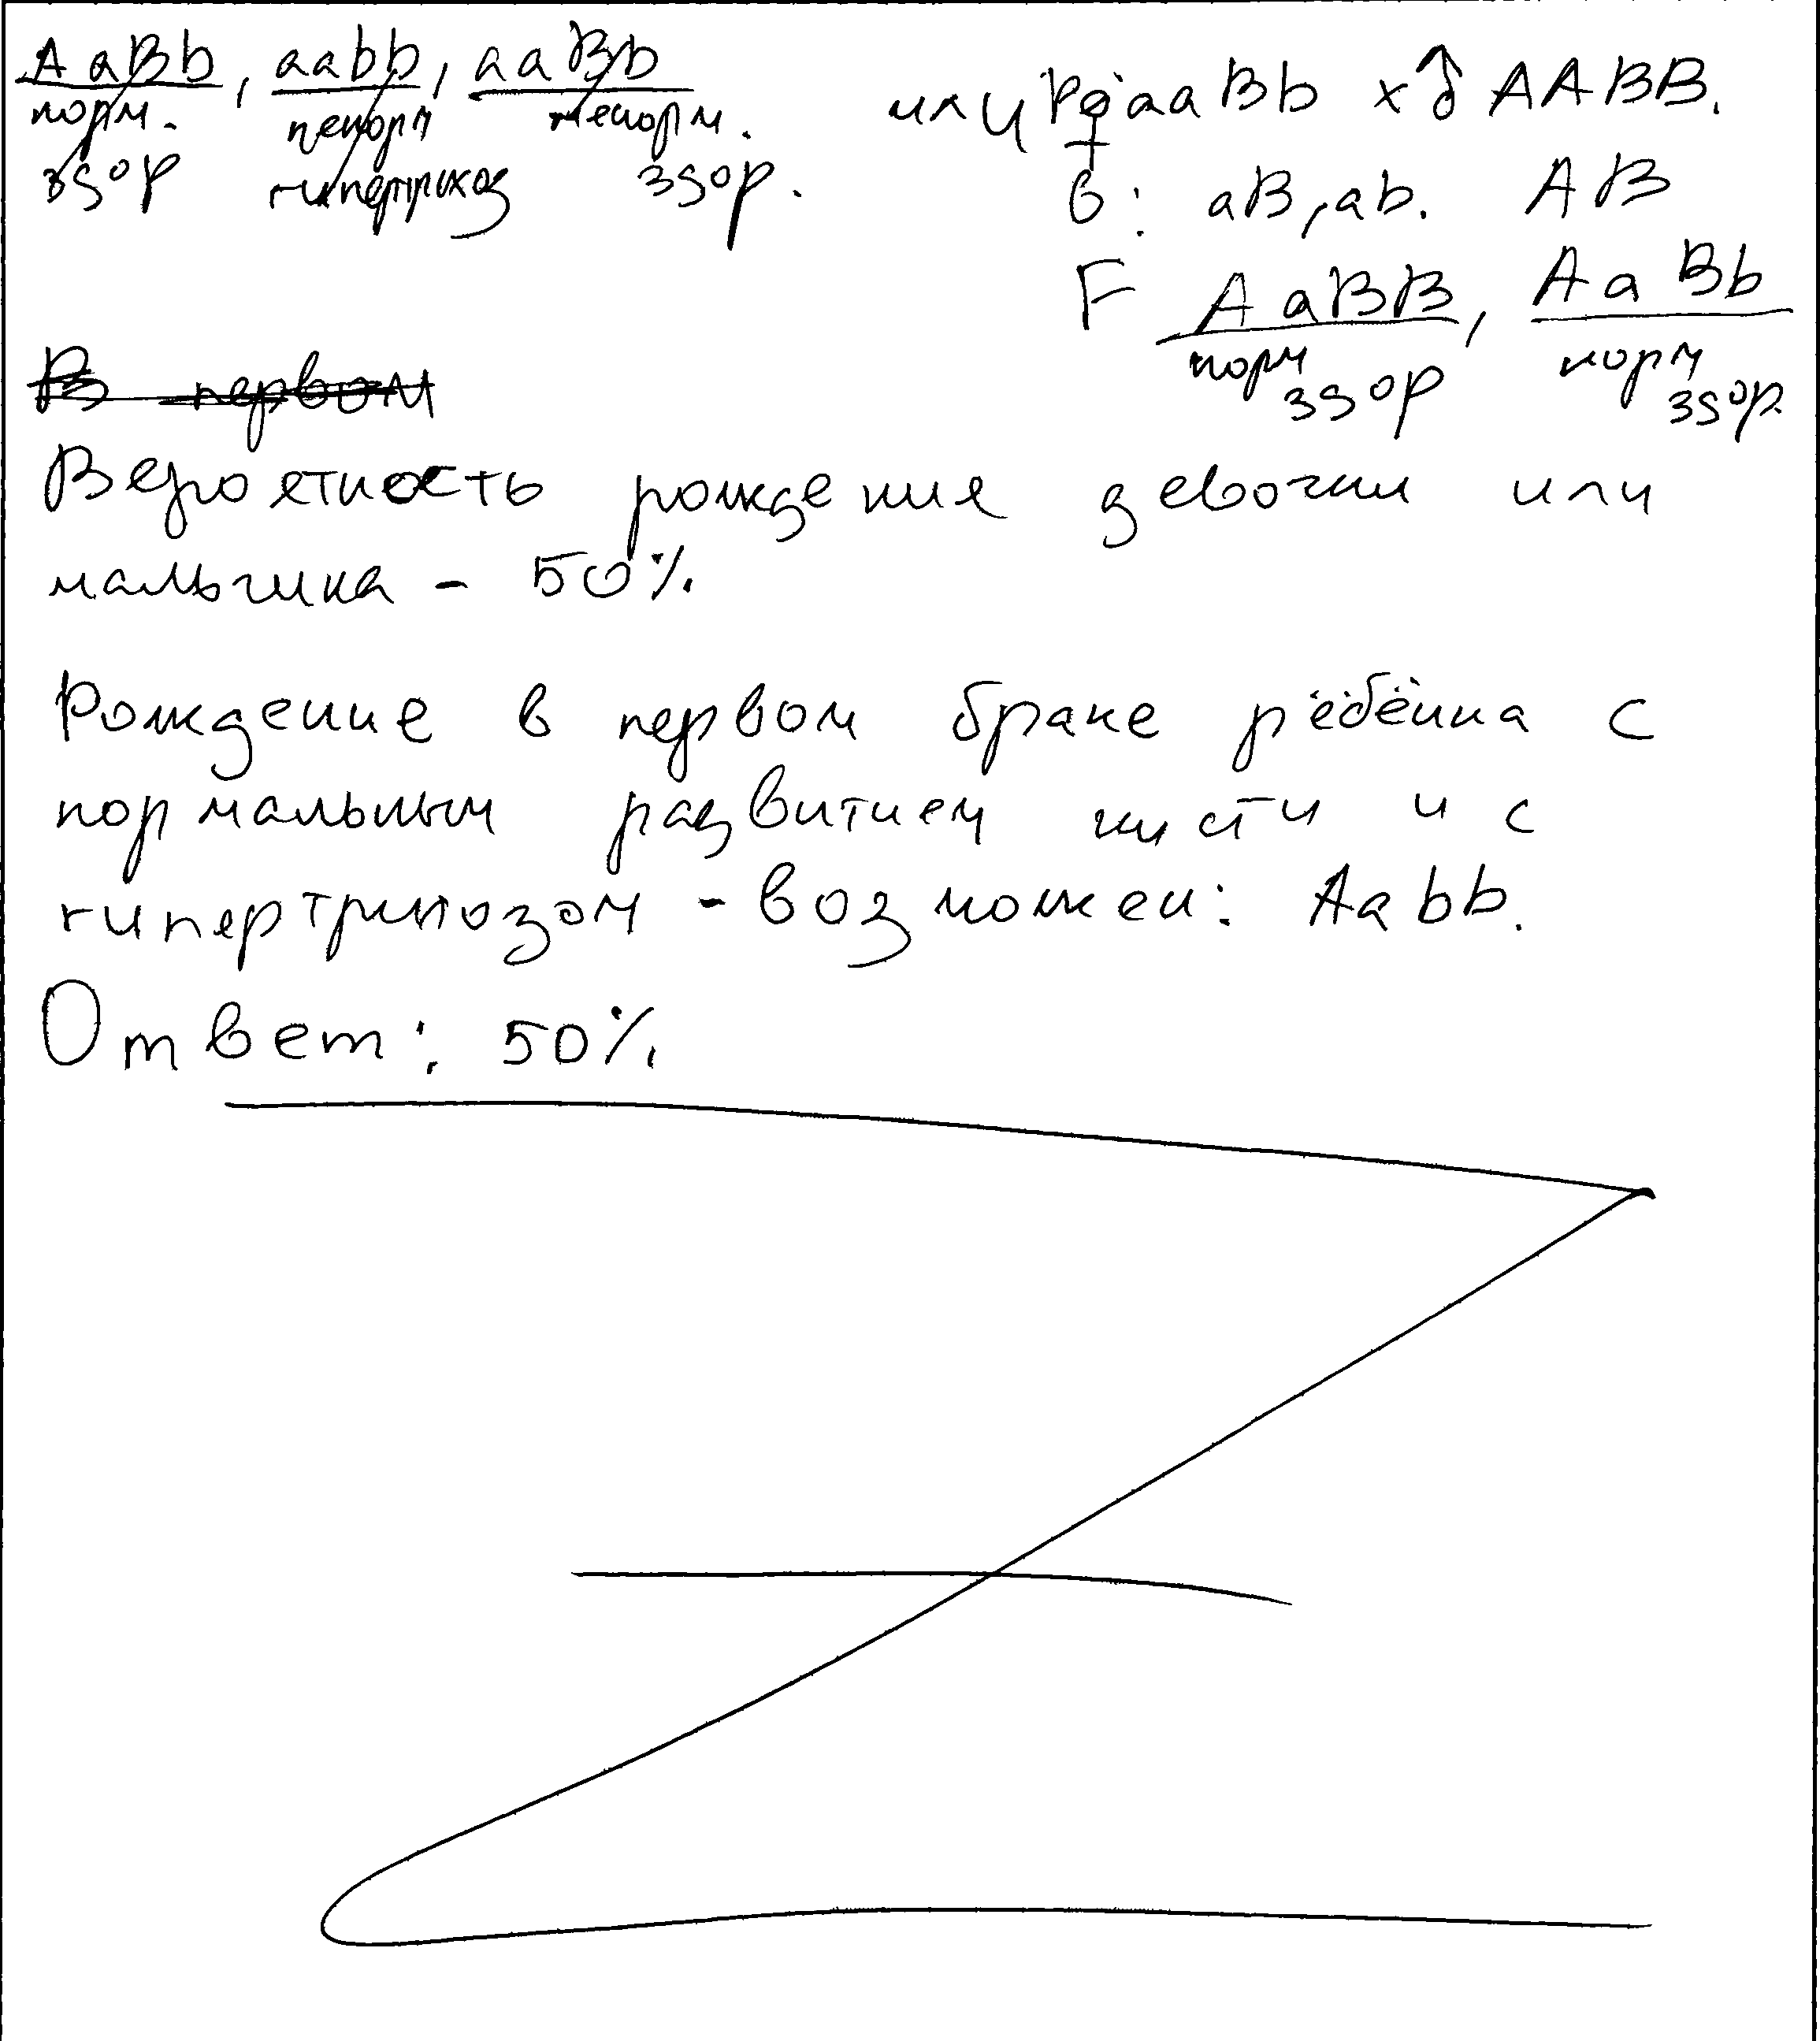 AaBb, aabb, aaBb
норм. ненорм ненорм.
здор гипертрихоз здор.
или P ♀ aaBb x ♂ AABB.
G: aB, ab. AB
F AaBB, AaBb
норм норм
здор здор.
В первом
Вероятность рождения девочки или
мальчика - 50%.
Рождение в первом браке рёбёнка с
нормальным развитием кисти и с
гипертрихозом - возможен: Aabb.
Ответ: 50%.